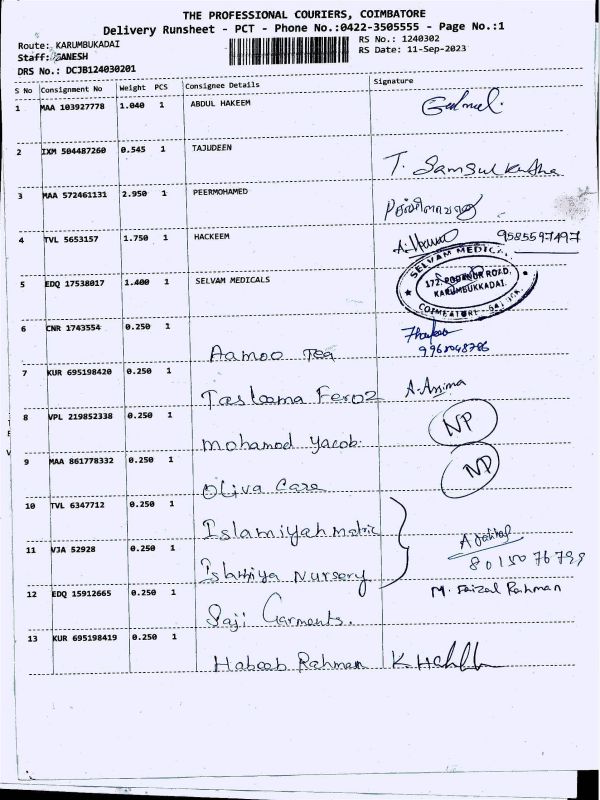 THE PROFESSIONAL COURIERS, COIMBATORE
Delivery Runsheet - PCT - Phone No.:0422-3505555 - Page No.:1
Route: KARUMBUKADAI RS No.: 1240302
Staff: GANESH RS Date: 11-Sep-2023
DRS No.: DCJB124030201
S No Consignment No Weight PCS Consignee Details Signature
1 MAA 103927778 1.040 1 ABDUL HAKEEM
2 IXM 504487260 0.545 1 TAJUDEEN
T. Samsul
3 MAA 572461131 2.950 1 PEERMOHAMED
4 TVL 5653157 1.750 1 HACKEEM 9585597497
SELVAM MEDICA
5 EDQ 17538017 1.400 1 SELVAM MEDICALS
172, PODANUR ROAD,
KARUMBUKKADAI
COIMBATORE
6 CNR 1743554 0.250 1 Aamoo Tea
7 KUR 695198420 0.250 1 Tasleema Feroz A. Assima
8 VPL 219852338 0.250 1 Mohamod Yacob NP
9 MAA 861778332 0.250 1 Oliva Care NP
10 TVL 6347712 0.250 1 Islamiyah Matric
11 VJA 52928 0.250 1 Ishriya Nursery
12 EDQ 15912665 0.250 1 Saji Garments. M. Faizal Rahman
13 KUR 695198419 0.250 1 Habeeb Rahman